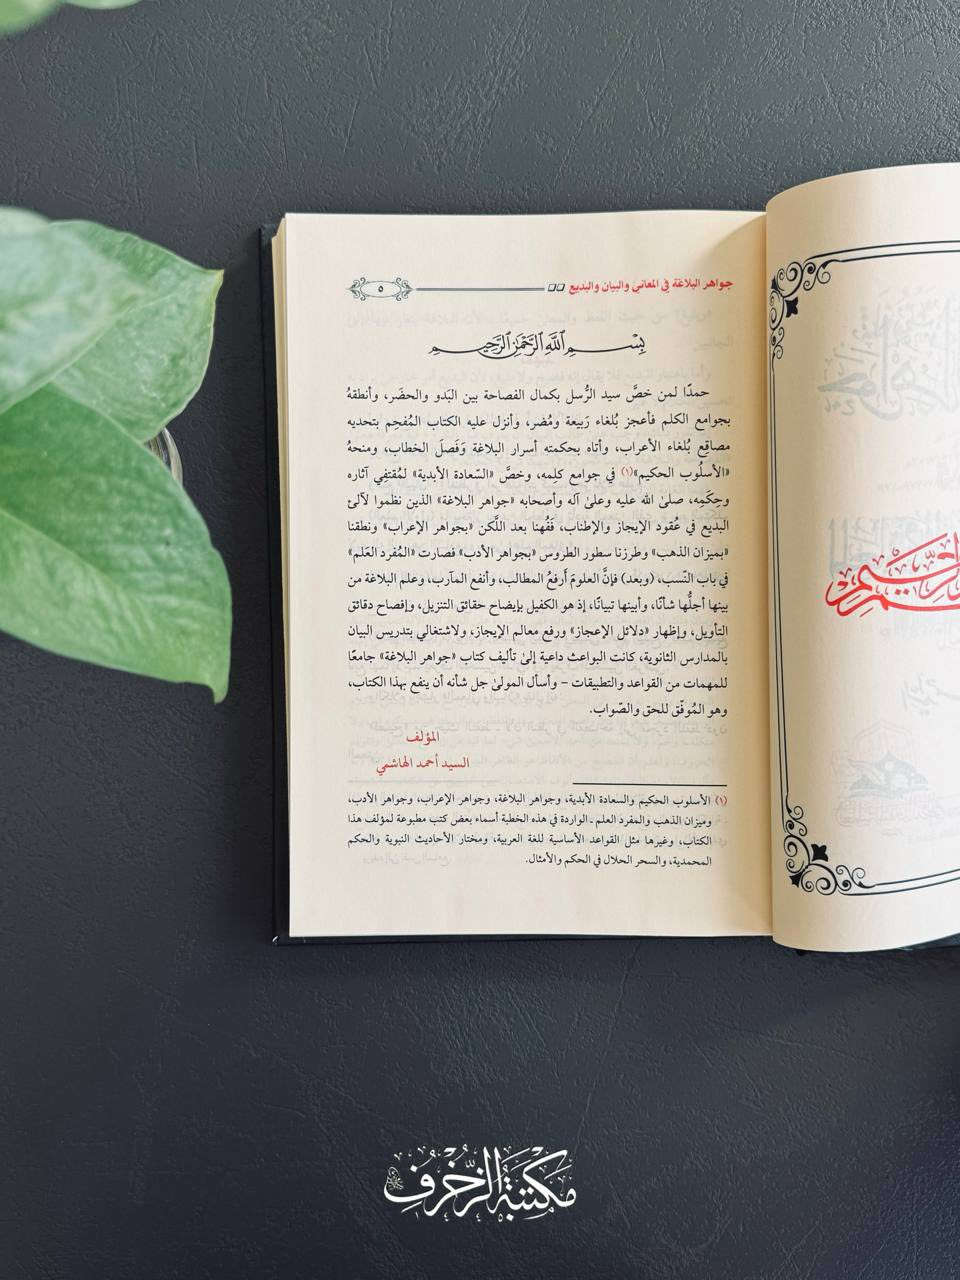 جواهر البلاغة في المعاني والبيان والبديع
٥
بِسْمِ ٱللَّهِ ٱلرَّحْمَٰنِ ٱلرَّحِيمِ
حمدًا لمن خصَّ سيد الرُّسل بكمال الفصاحة بين البَدو والحضَر، وأنطقهُ
بجوامع الكلم فأعجز بُلغاء رَبيعة ومُضر، وأنزل عليه الكتاب المُفحِم بتحديه
مصاقِع بُلغاء الأعراب، وأتاه بحكمته أسرار البلاغة وَفَصلَ الخطاب، ومنحهُ
«الأسلُوب الحكيم»(١) في جوامع كلِمه، وخصَّ «السّعادة الأبدية» لمُقتفِي آثاره
وحِكَمِه، صلىٰ الله عليه وعلىٰ آله وأصحابه «جواهر البلاغة» الذين نظموا لآلئ
البديع في عُقود الإيجاز والإطناب، فَفُهنا بعد اللَّكن «بجواهر الإعراب» ونطقنا
«بميزان الذهب» وطرزنا سطور الطروس «بجواهر الأدب» فصارت «المُفرد العَلم»
في باب النّسب، (وبعد) فإنَّ العلومَ أَرفعُ المطالب، وأنفع المآرب، وعلم البلاغة من
بينها أجلُّها شأنًا، وأبينها تبيانًا، إذ هو الكفيل بإيضاح حقائق التنزيل، وإفصاح دقائق
التأويل، وإظهار «دلائل الإعجاز» ورفع معالم الإيجاز، ولاشتغالي بتدريس البيان
بالمدارس الثانوية، كانت البواعث داعية إلىٰ تأليف كتاب «جواهر البلاغة» جامعًا
للمهمات من القواعد والتطبيقات – وأسأل المولىٰ جل شأنه أن ينفع بهذا الكتاب،
وهو المُوفّق للحق والصّواب.
المؤلف
السيد أحمد الهاشمي
(١) الأسلوب الحكيم والسعادة الأبدية، وجواهر البلاغة، وجواهر الإعراب، وجواهر الأدب،
وميزان الذهب والمفرد العلم ـ الواردة في هذه الخطبة أسماء بعض كتب مطبوعة لمؤلف هذا
الكتاب، وغيرها مثل القواعد الأساسية للغة العربية، ومختار الأحاديث النبوية والحكم
المحمدية، والسحر الحلال في الحكم والأمثال.
مكتبة الزخرف